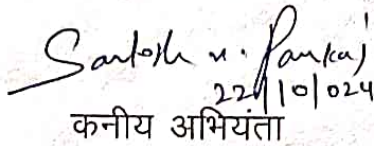 Santosh n. Pankaj
22/10/024
कनीय अभियंता